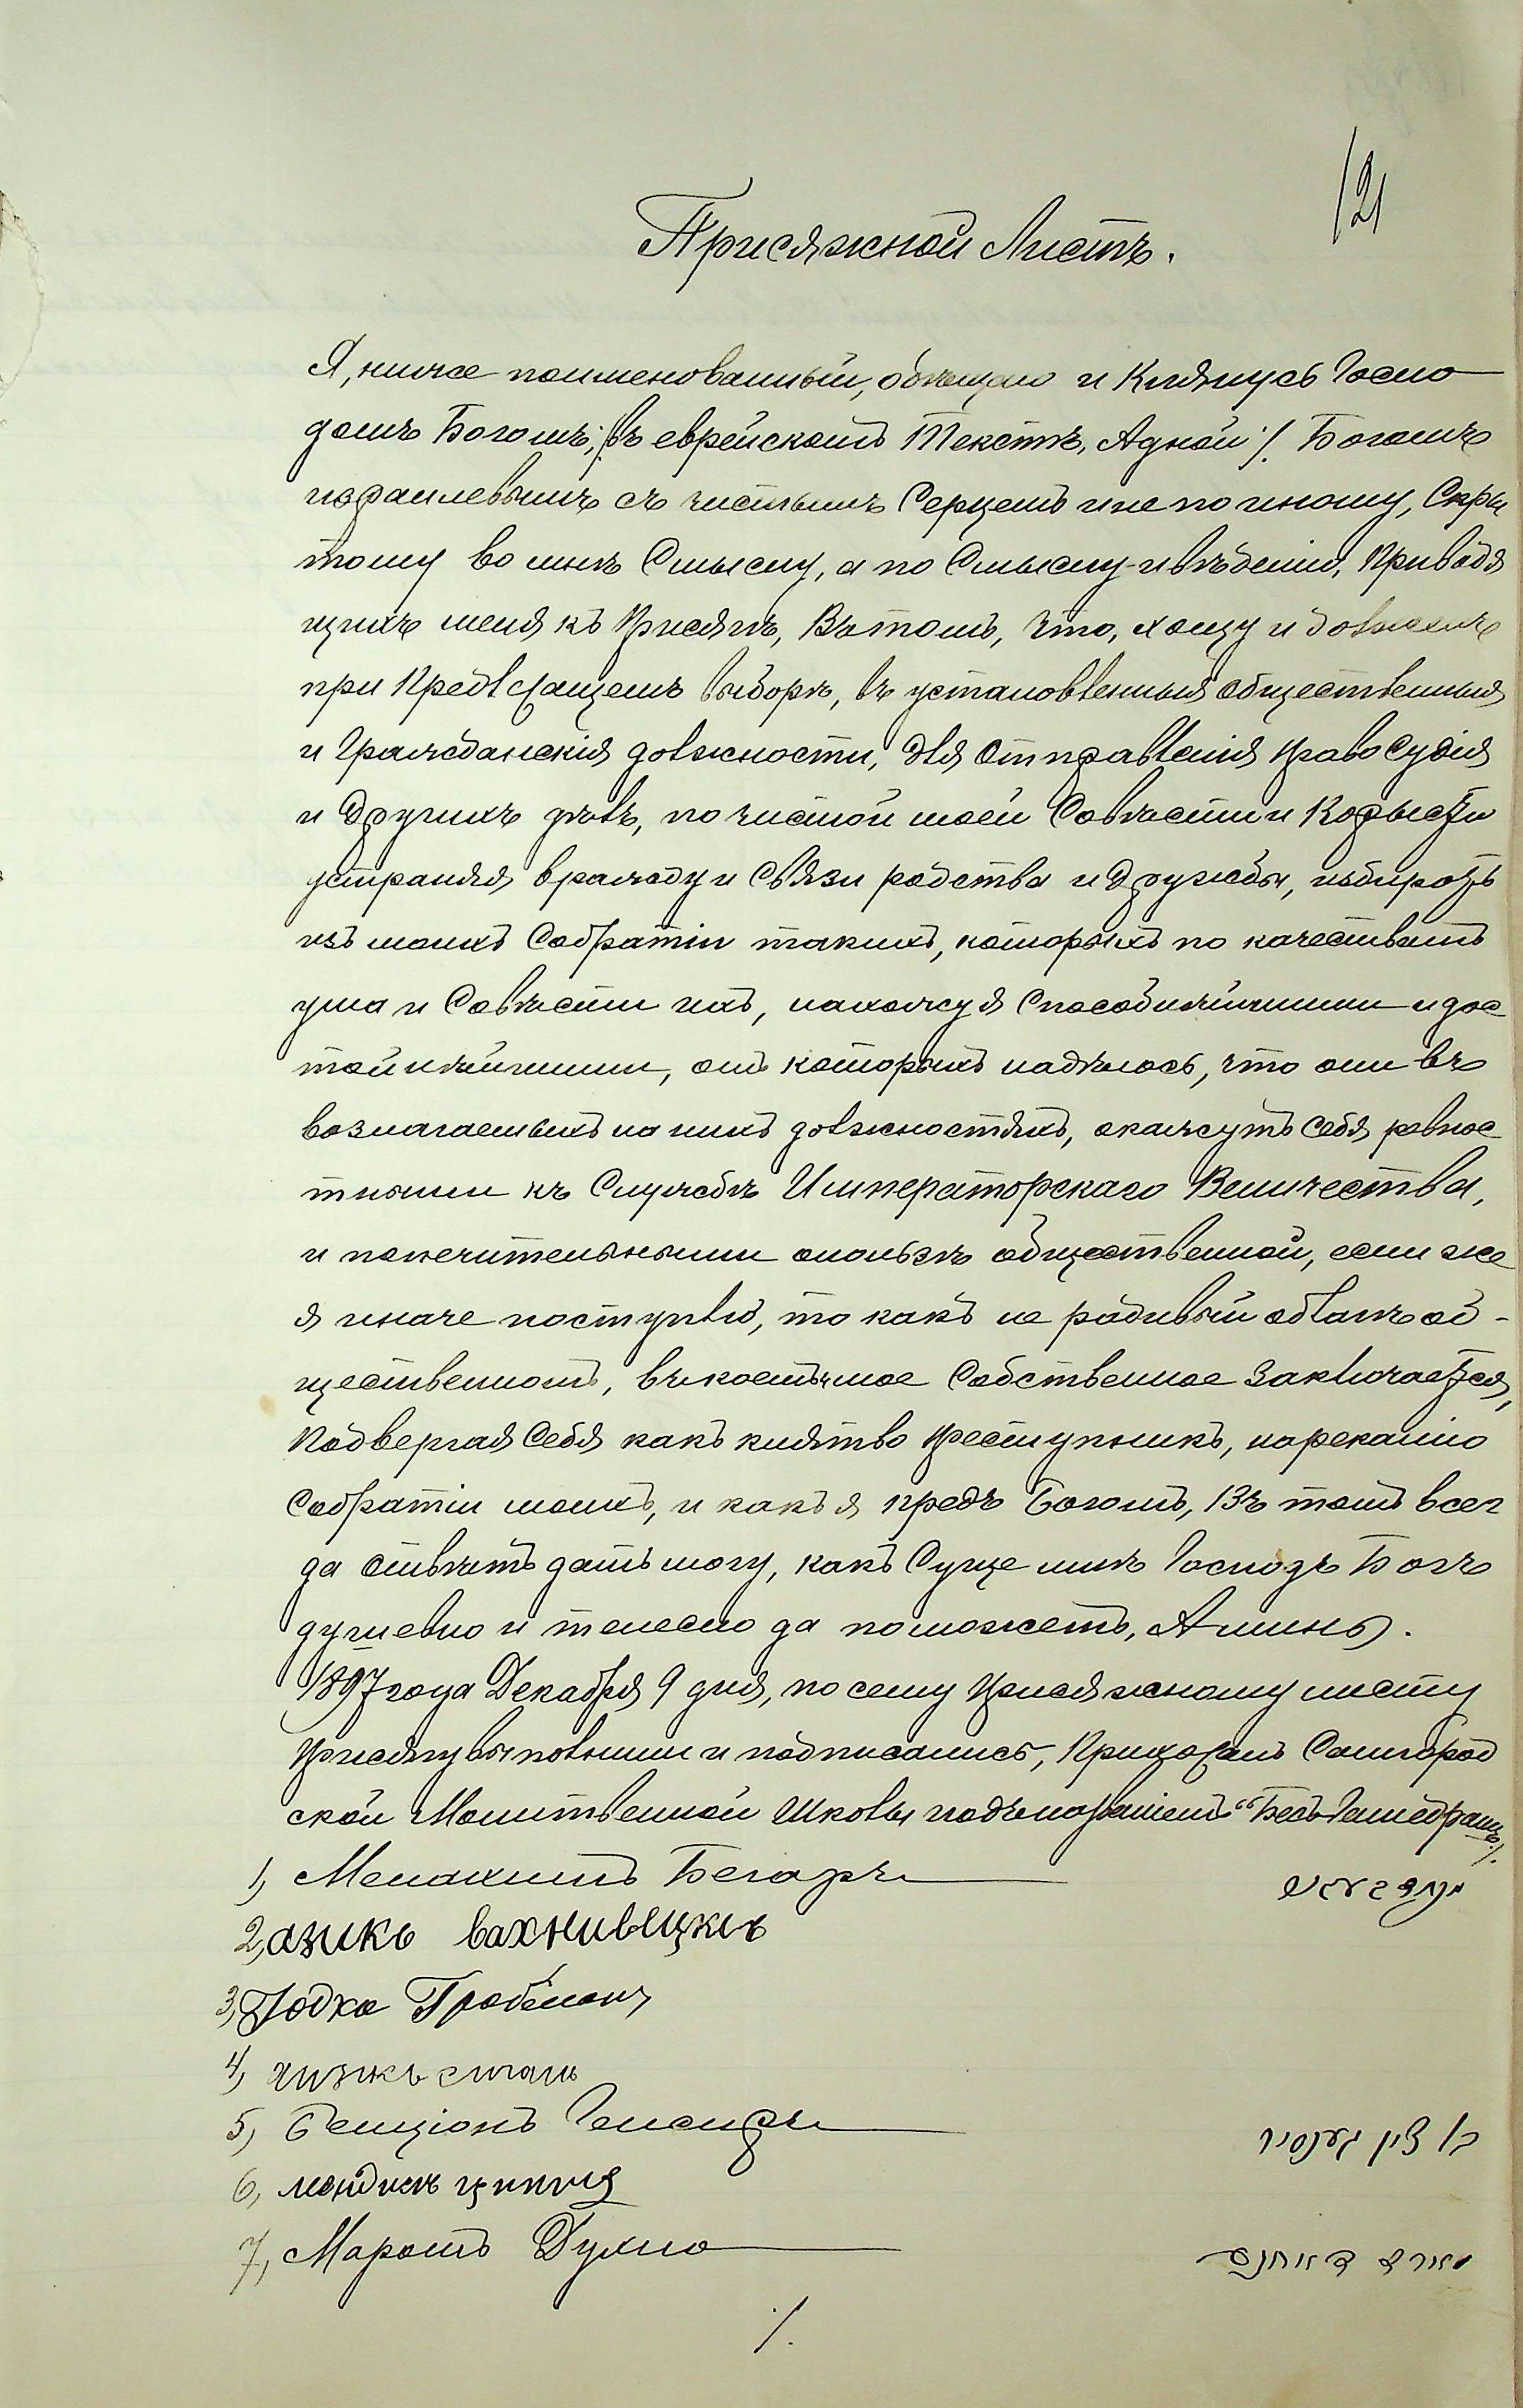 121
Присяжной Листъ.
Я, ниже поименованный, обѣщаю и Клянусь Госпо
домъ Богомъ, /:въ еврейскомъ Текстѣ, Адной:/ Богомъ
израилевымъ съ чистымъ Серцемъ и не по иному, Скры
тому во мнѣ Смыслу, а по Смыслу и вѣденію, Приводя
щихъ меня къ Присягѣ, Вътомъ, Что, хощу и долженъ
при Предъ сѣдащемъ выборѣ, въ установленныя общественныя
и Гражданскія должности, для Отправленія Правосудія
и Другихъ дѣлъ, по чистой моей Совѣсти и Корысти
устраняя вражду и Связи родства и Дружбы, избирать
изъ моихъ Собратій такихъ, которыхъ по качествамъ
ума и Совѣсти ихъ, нахожу я Способнѣйшими и дос
тойнѣйшими, отъ которыхъ надѣюсь, что они въ
возлагаемыхъ на нихъ должностяхъ, окажутъ Себя ревнос
тными къ Службѣ Императорскаго Величества,
и попечительными опользѣ общественной, если же
я иначе поступлю, то какъ не радивый облагѣ об-
щественномъ, въкоемъ и мое Собственное Заключается,
Подвергая Себя какъ клятво преступникъ, нареканію
Собратій моихъ, и какъ я предъ Богомъ, Въ томъ всег
да отвѣтъ дать могу, какъ Суще мнѣ Господь Богъ
душевно и телесно да поможетъ, Аминь.
1897 года Декабря 9 дня, по сему Присяжному листу
Присягу выполнили и подписались, Прихожанъ Самгород
ской Молитвенной Школы подъ названіемъ "Бесъ Гамедрашъ"/.
1, Менахимъ Бегаръ
2, азикъ вахнивецкиъ
3, Іодко Гройсманъ
4,
5, Бенціонъ Генсиръ בן ציון גענסיר
6,
7, Мароть Духно
/.